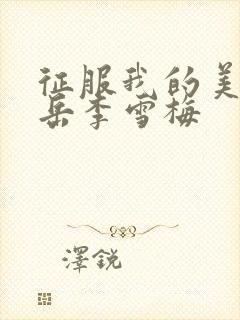 征服我的美
岳李雪梅
澤銳